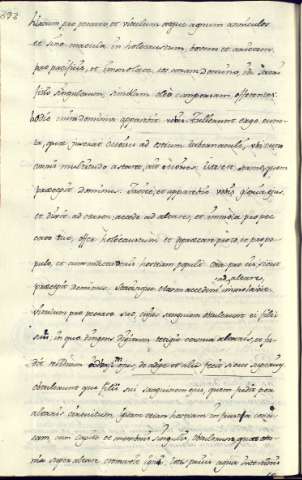 892
hircum pro peccato, et vitulum atque agnum anniculos
et sine macula in holocaustum, bovem et arietem
pro pacificis, et immolate eos coram Domino, in sacri
ficio singulorum, similam oleo conspersam offerentes
hodie enim dominus apparebit vobis. Tullerunt ergo cunc
ta, quæ jusserat ad ostium tabernaculi, ubi cum
omnis multitudo astaret, ait Moises, iste est sermo, quem
præcepit dominus. Facite, et apparebit vobis gloria ejus,
et dixit ad Aaron, accede ad altare, et immola pro pec
cato tuo, offer holocaustum et deprecare pro te, et pro po
pulo, et cum hostiam populi ora pro eo, sicut
præcepit dominus. Statimque Aaron accedens ad altare, immolavit
vitulum pro peccato suo, cujus sanguinem obtulerunt ei filii
sui, in quo tingens digitum tetigit cornua altaris, et fu
dit residuum ad basim ejus, adipem
obtulerunt que filii sui sanguinem ejus, quem fudit per
altaris circuitum, ipsam etiam hostiam in frusta conci
sam, cum capite et membris singulis obtulerunt, quæ om
nia super altare cremavit igni, lotis prius aqua intestinis